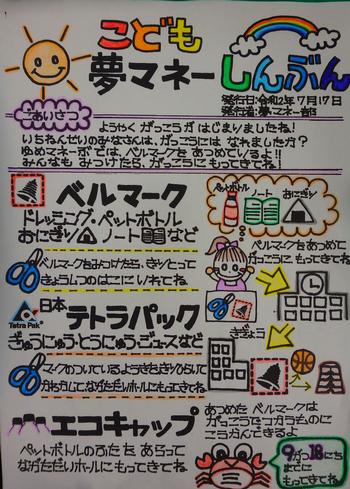 こども
夢マネーしんぶん
発行日:令和2年7月17日
発行者:夢マネー部
ごあいさつ
ようやく がっこうが はじまりましたね!
いちねんせいのみなさんは、がっこうには なれました方?
ゆめマネーぶでは、ベルマークを あつめているよ!!
みんなも みつけたら、がっこうに もってきてね!
ベルマーク
ドレッシング・ペットボトル
おにぎり ノート など
ベルマークをみつけたら、きりとって
きょうしつのはこに いれてね。
ペットボトル
ノート
おにぎり
ベルマークをあつめて
がっこうに、もってきてね
きぎょう
Tetra Pak
日本テトラパック
ぎゅうにゅう・とうにゅう・ジュースなど
マークのついているようきをきりひらいて
かわかして、ながただいホールにもってきてね
エコキャップ
ペットボトルのふたを あらって
ながただいホールに もってきてね
あつめた ベルマークは
がっこうでつかうものに
こうかんできるよ
9がつ18にち
までに
もってきてね!